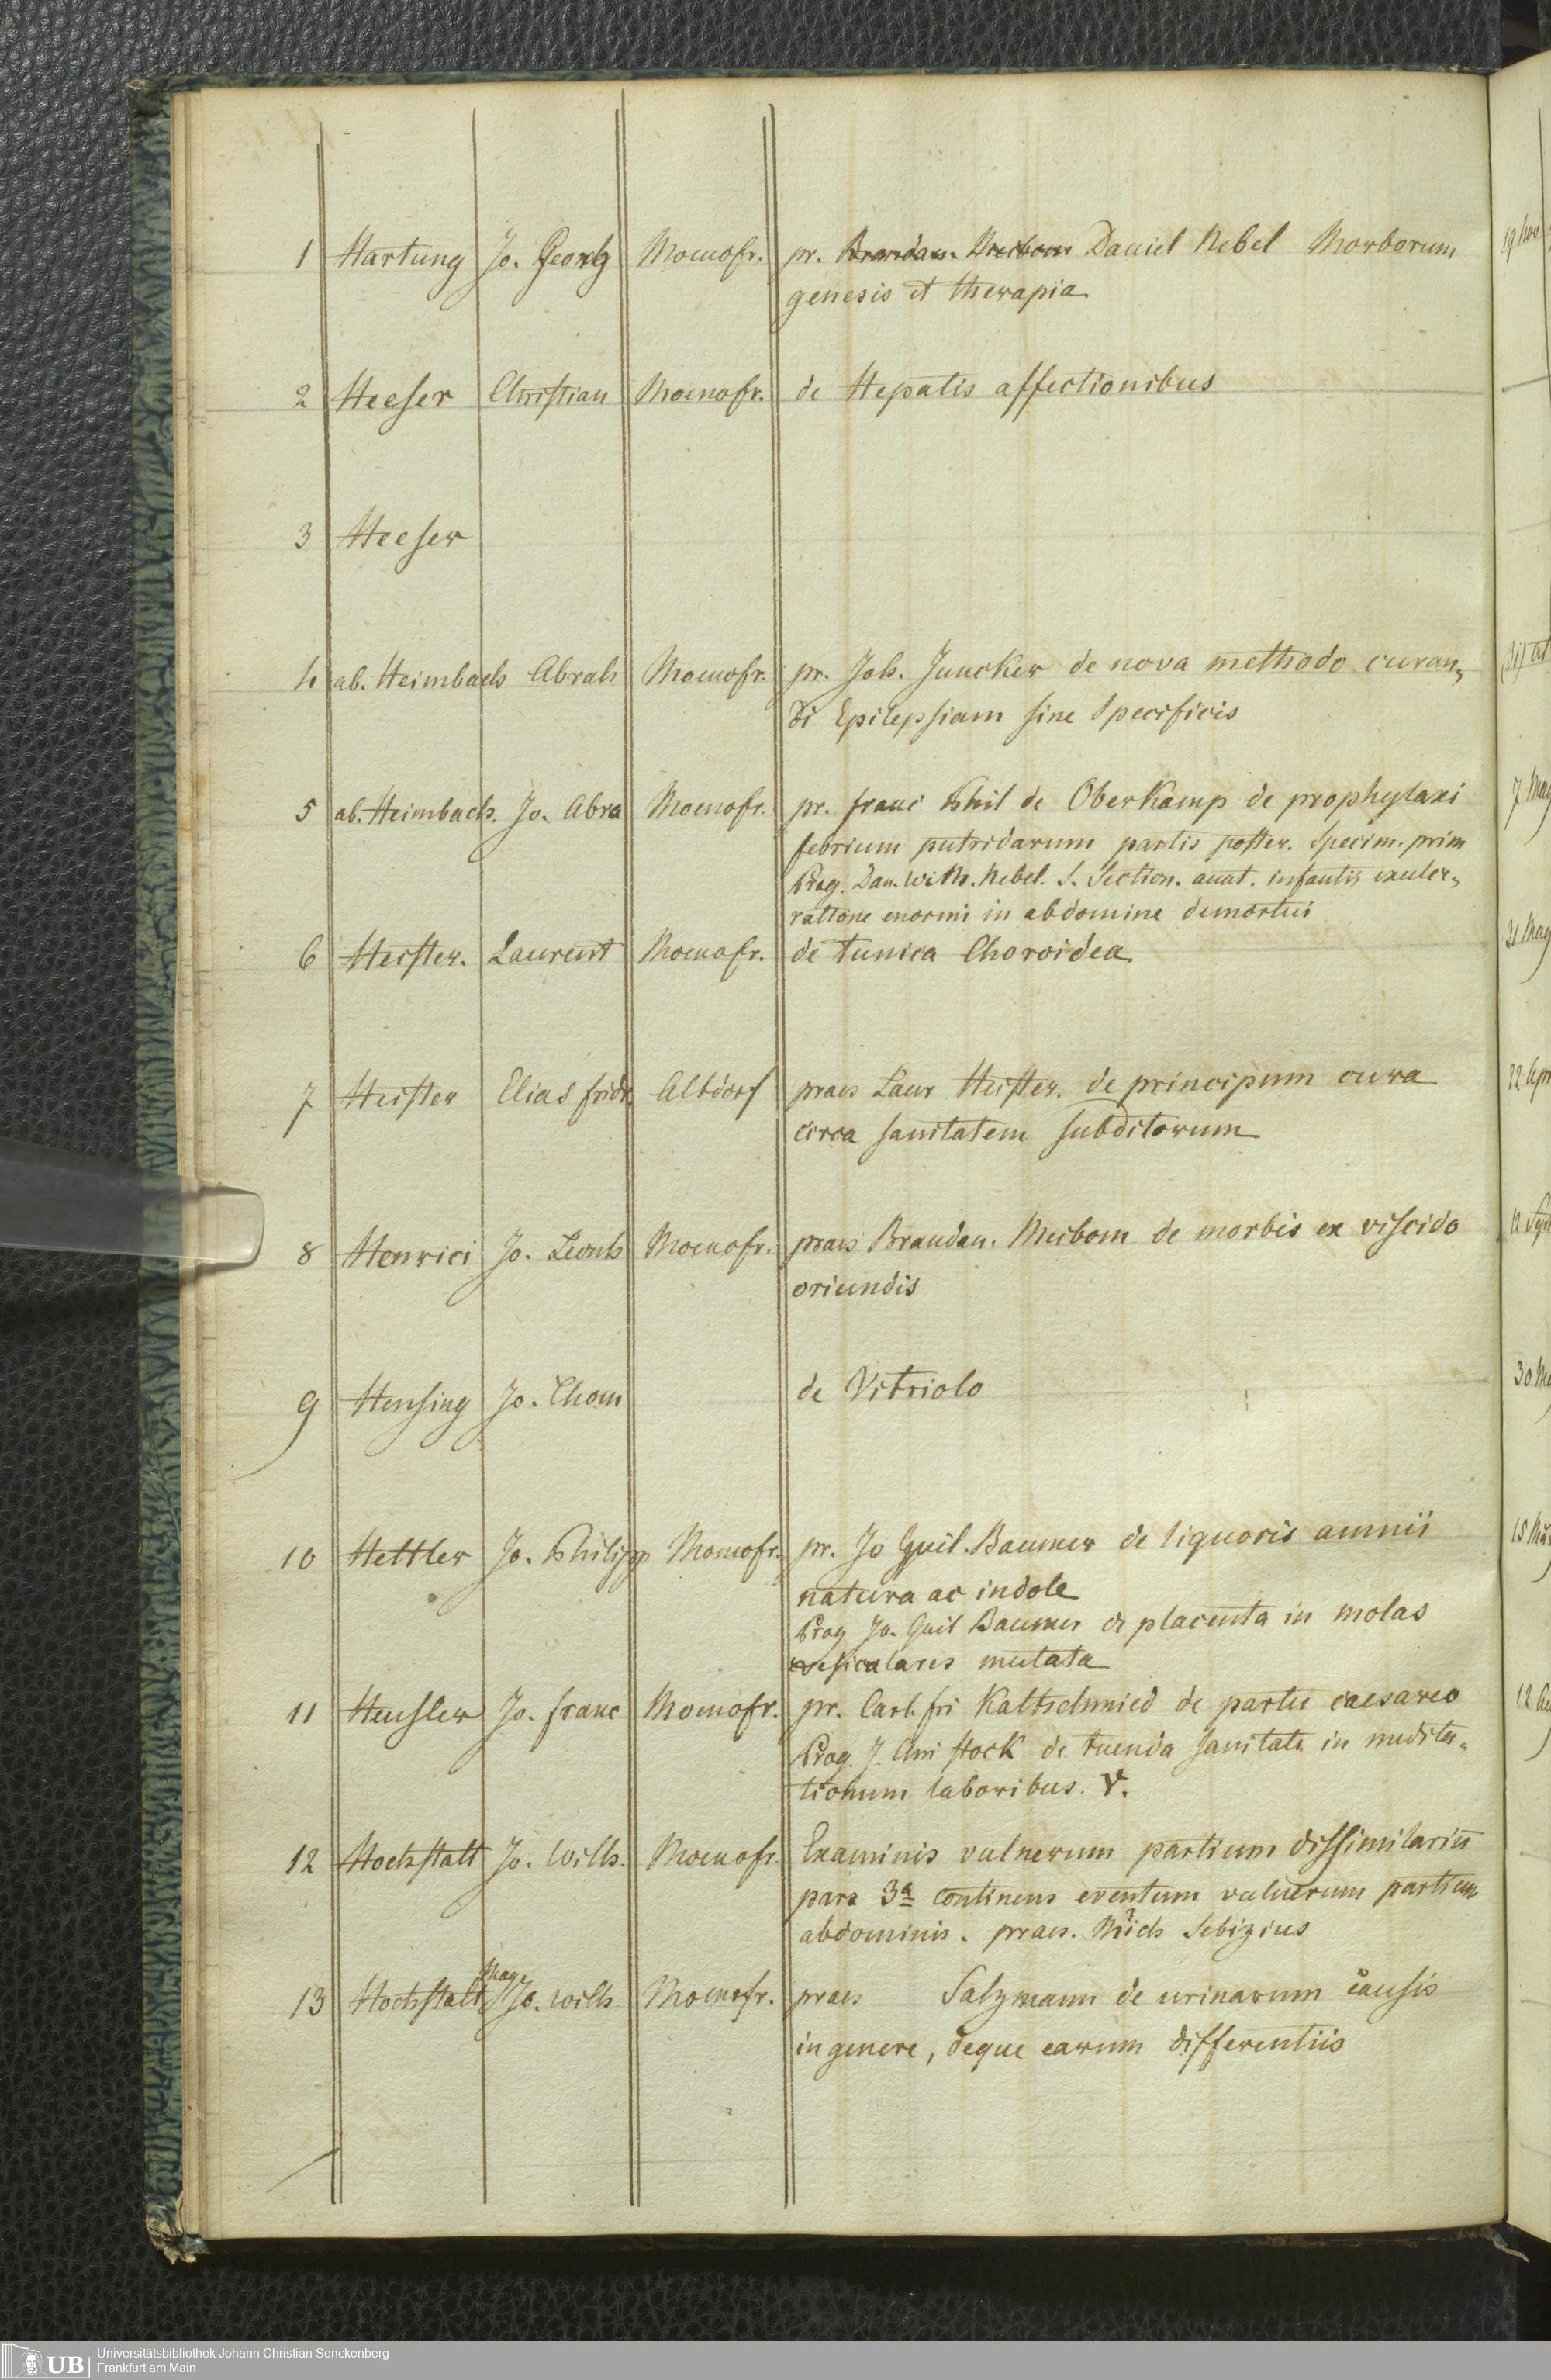 1 Hartung Jo. Georg Moenofr. pr. Brandan. Meibom Daniel Nebel Morborum 19 Nov
genesis et therapia
2 Heeser Christian Moenofr. de Hepatis affectionibus
3 Heeser
4 ab. Heimbach Abrah Moenofr. pr. Joh. Juncker de nova methodo curan,
di Epilepsiam sine Specificis
5 ab. Heimbach. Jo. Abra Moenofr. pr. franc Phil de Oberkamp de prophylaxi 7 May
febrium putridarum partis poster. Specim. prim
Prog. Dan. Wilh. Nebel. S. Section. anat. infantis exulce,
rattone enormi in abdomine demortui
6 Heister. Laurent Moenofr. de tunica Choroidea 31 May
7 Heister Elias fridr. Altdorf praes Laur Heister. de principum cura 22 Apr
circa sanitatem subditorum
8 Henrici Jo. Leonh Moenofr. praes Brandan. Meibom de morbis ex viscido 12
oriundis
9 Hensing Jo. Thom de Vitriolo 30
10 Hettler Jo. Philipp Moenofr. pr. Jo Guil. Baumer de liquoris amnii 15
natura ac indole
Prog Jo. Guil Baumer de placenta in molas
vesiculares mutata
11 Heusler Jo. franc Moenofr. pr. Carl. fri Kaltschmied de partu caesareo 12
Prog. J. Chri stock de tuenda sanitate in medita,
tionum laboribus. V.
12 Hochstatt Jo. Wilh. Moenofr. Examinis vulnerum partium dissimilariu
pars 3a continens eventum vulnerum partium
abdominis. praes. Mich Sebizius
13 Hochstatt Mag. Jo. Wilh Moenofr. praes Salzmann de urinarum causis
in genere, deque earum differentiis
UB Universitätsbibliothek Johann Christian Senckenberg
Frankfurt am Main